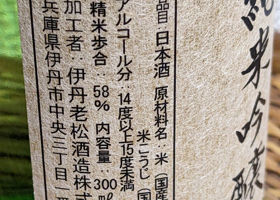 純米吟醸
品目 日本酒 原材料名:米(国産
米こうじ(国
アルコール分:14度以上15度未満
精米歩合:58% 内容量:300ml
加工者:伊丹老松酒造株式
兵庫県伊丹市中央三丁目1